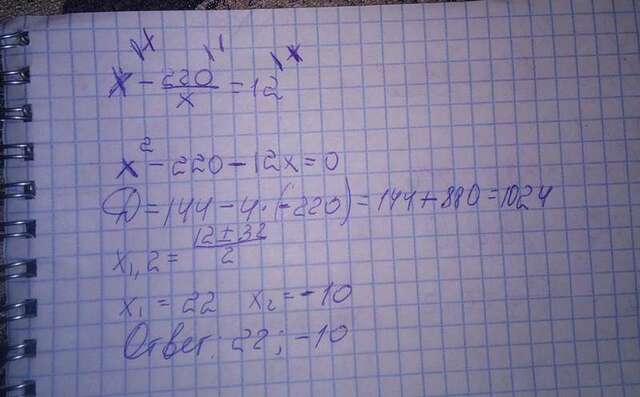 x 1 x
x - 220/x = 12
x² - 220 - 12x = 0
D = 144 - 4·(-220) = 144 + 880 = 1024
x₁,₂ = (12 ± 32)/2
x₁ = 22 x₂ = -10
Ответ: 22; -10